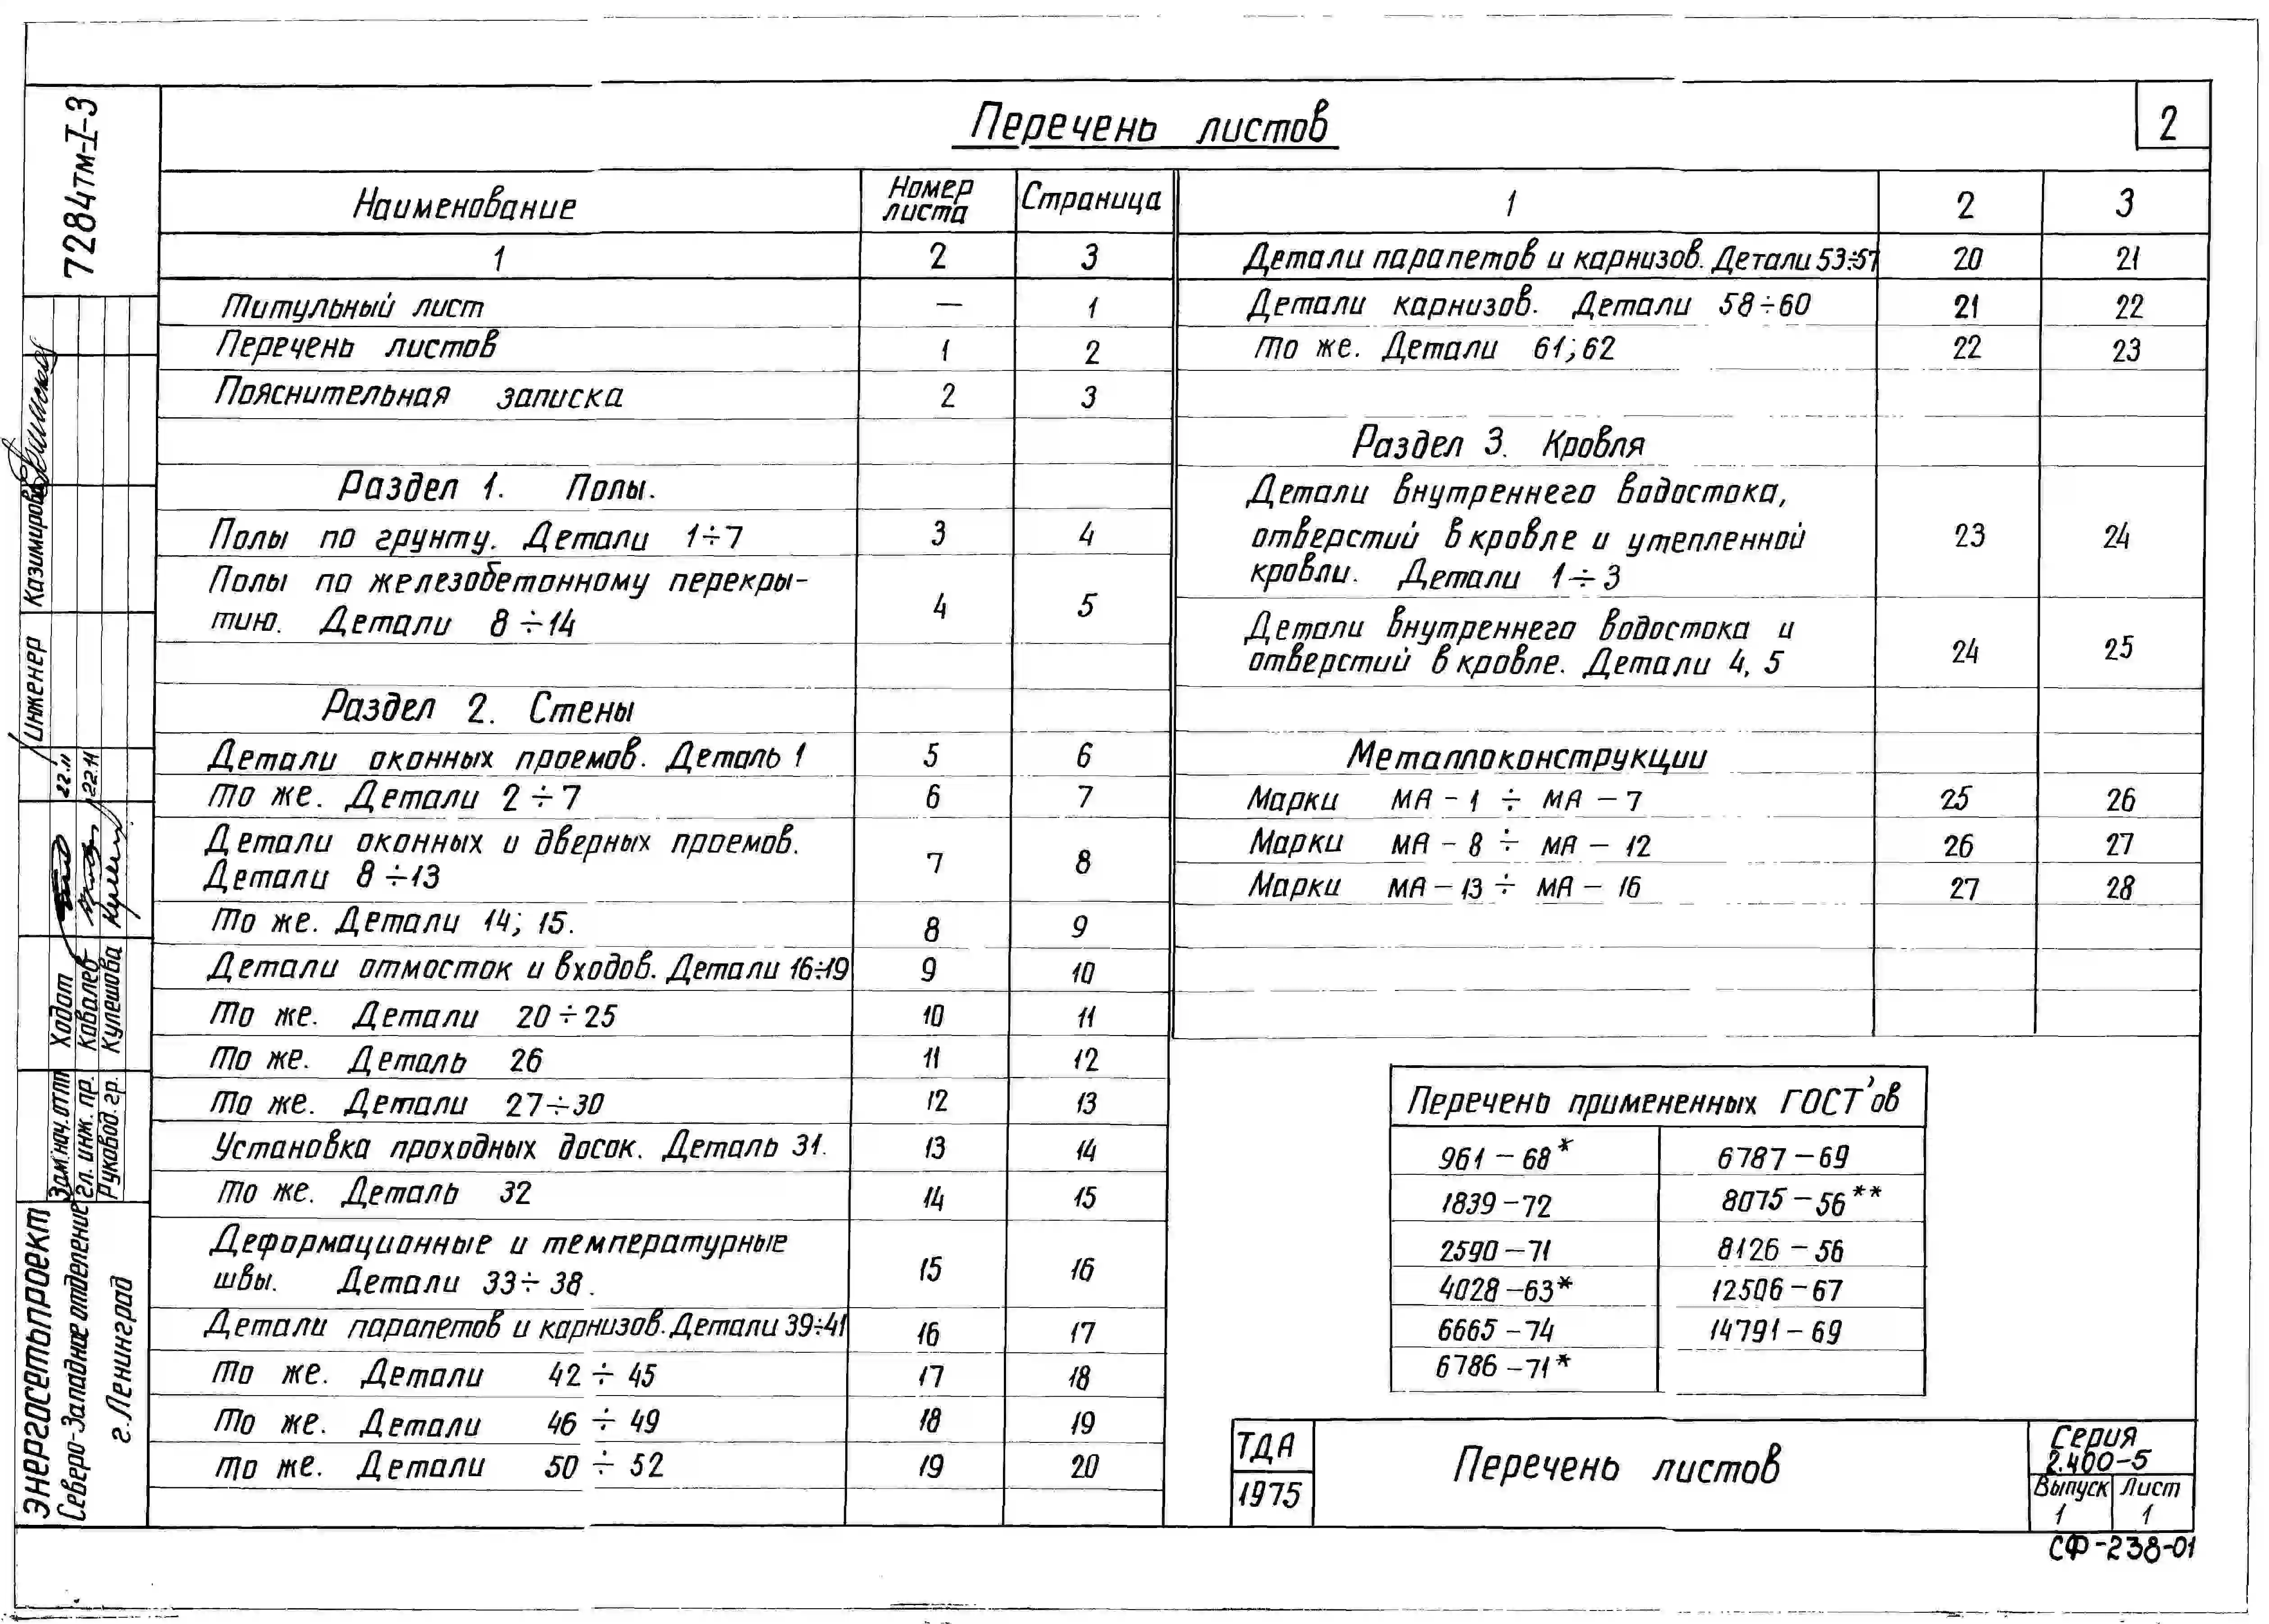 Перечень листов
2
7284тм-I-3
Наименование Номер листа Страница
1 2 3
Титульный лист — 1
Перечень листов 1 2
Пояснительная записка 2 3
Раздел 1. Полы.
Полы по грунту. Детали 1÷7 3 4
Полы по железобетонному перекры-
тию. Детали 8÷14 4 5
Раздел 2. Стены
Детали оконных проемов. Деталь 1 5 6
То же. Детали 2÷7 6 7
Детали оконных и дверных проемов.
Детали 8÷13 7 8
То же. Детали 14; 15. 8 9
Детали отмосток и входов. Детали 16÷19 9 10
То же. Детали 20÷25 10 11
То же. Деталь 26 11 12
То же. Детали 27÷30 12 13
Установка проходных досок. Деталь 31. 13 14
То же. Деталь 32 14 15
Деформационные и температурные
швы. Детали 33÷38. 15 16
Детали парапетов и карнизов. Детали 39÷41 16 17
То же. Детали 42÷45 17 18
То же. Детали 46÷49 18 19
То же. Детали 50÷52 19 20
1 2 3
Детали парапетов и карнизов. Детали 53÷57 20 21
Детали карнизов. Детали 58÷60 21 22
То же. Детали 61; 62 22 23
Раздел 3. Кровля
Детали внутреннего водостока,
отверстий в кровле и утепленной 23 24
кровли. Детали 1÷3
Детали внутреннего водостока и
отверстий в кровле. Детали 4, 5 24 25
Металлоконструкции
Марки МА-1 ÷ МА-7 25 26
Марки МА-8 ÷ МА-12 26 27
Марки МА-13 ÷ МА-16 27 28
Перечень примененных ГОСТ'ов
961-68* 6787-69
1839-72 8075-56**
2590-71 8126-56
4028-63* 12506-67
6665-74 14791-69
6786-71*
ТДА
1975
Перечень листов
Серия
2.400-5
Выпуск Лист
1 1
СФ-238-01
Инженер Казимирова
22.11
22.11
Зам.нач.отп Ходот
Гл. инж. пр. Ковалев
Руковод. гр. Кулешова
ЭНЕРГОСЕТЬПРОЕКТ
Северо-Западное отделение
г. Ленинград